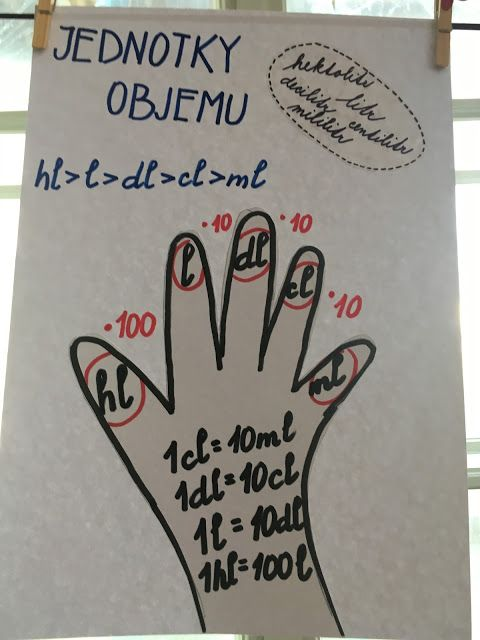 JEDNOTKY
OBJEMU
hektolitr
litr
decilitr
centilitr
mililitr
hl>l>dl>cl>ml
·100
·10
·10
·10
hl
l
dl
cl
ml
1cl=10ml
1dl=10cl
1l=10dl
1hl=100l